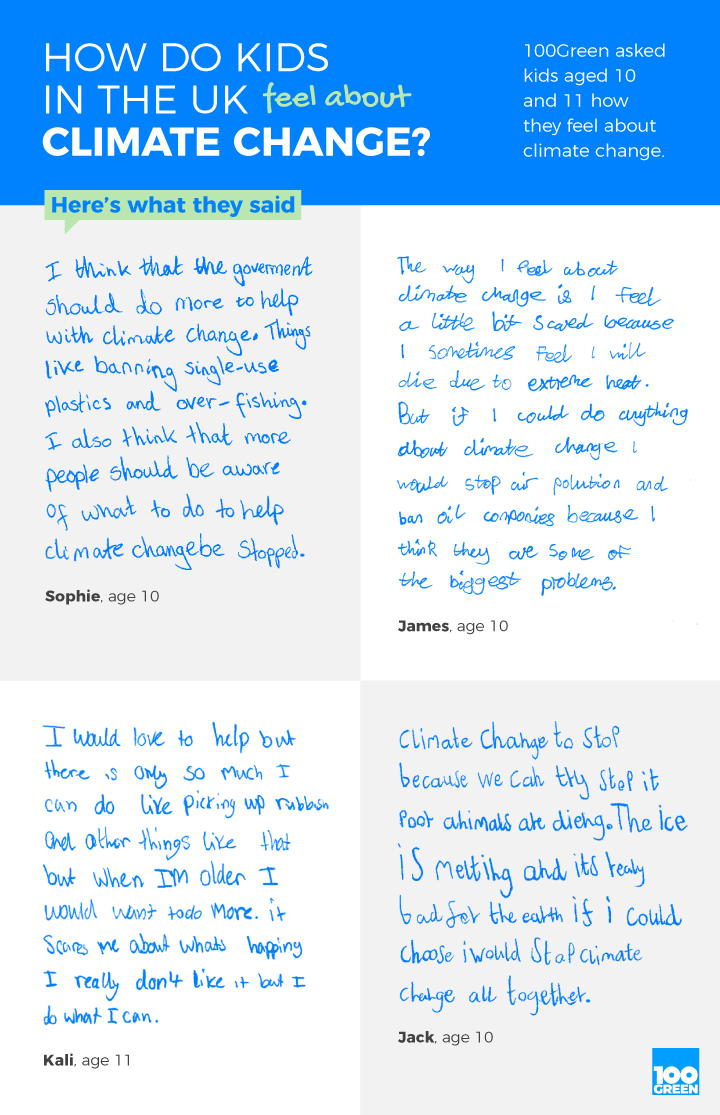 HOW DO KIDS
IN THE UK feel about
CLIMATE CHANGE?
100Green asked
kids aged 10
and 11 how
they feel about
climate change.
Here's what they said
I think that the goverment
should do more to help
with climate change. Things
like banning single-use
plastics and over-fishing.
I also think that more
people should be aware
of what to do to help
climate changebe stopped.
Sophie, age 10
The way I feel about
climate change is I feel
a little bit scared because
I sometimes feel I will
die due to extreme heat.
But if I could do anything
about climate change I
would stop air polution and
ban oil companies because I
think they are some of
the biggest problems.
James, age 10
I would love to help but
there is only so much I
can do like picking up rubbish
and other things like that
but when I'M older I
would want todo more. it
Scares me about whats happing
I really don't like it but I
do what I can.
Kali, age 11
Climate Change to Stop
because we can try stop it
poor animals are dieing. The ice
is melting and its realy
bad for the earth if i could
choose i would stop climate
change all together.
Jack, age 10
100
GREEN